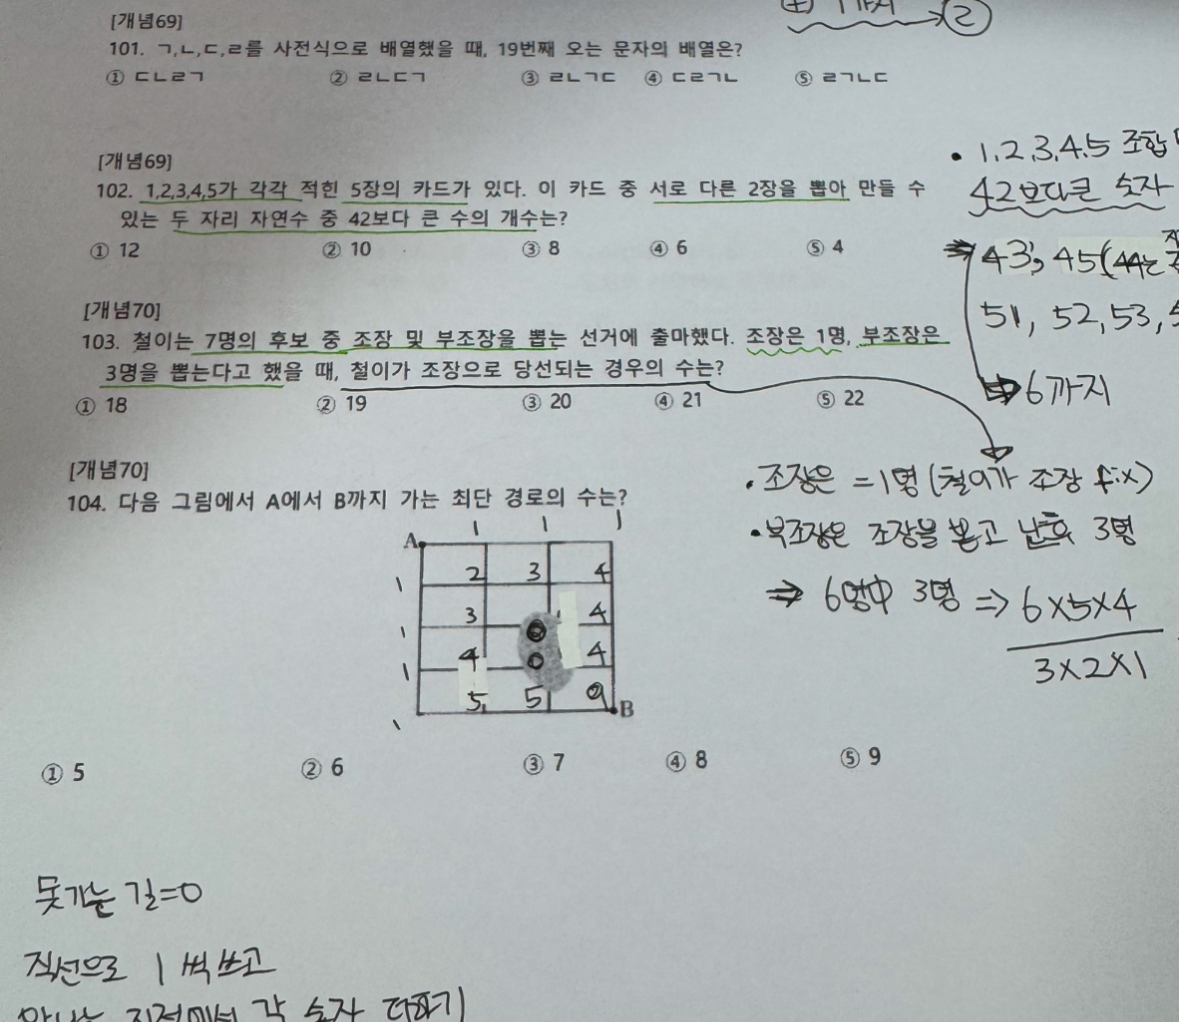 ② 
[개념69]
101. ㄱ,ㄴ,ㄷ,ㄹ를 사전식으로 배열했을 때, 19번째 오는 문자의 배열은?
① ㄷㄴㄹㄱ ② ㄹㄴㄷㄱ ③ ㄹㄴㄱㄷ ④ ㄷㄹㄱㄴ ⑤ ㄹㄱㄴㄷ
[개념69]
102. 1,2,3,4,5가 각각 적힌 5장의 카드가 있다. 이 카드 중 서로 다른 2장을 뽑아 만들 수
있는 두 자리 자연수 중 42보다 큰 수의 개수는?
① 12 ② 10 ③ 8 ④ 6 ⑤ 4
• 1,2,3,4,5 조합
42보다큰 숫자
⇒ 43, 45(44는
51, 52, 53,
⇒ 6까지
[개념70]
103. 철이는 7명의 후보 중 조장 및 부조장을 뽑는 선거에 출마했다. 조장은 1명, 부조장은
3명을 뽑는다고 했을 때, 철이가 조장으로 당선되는 경우의 수는?
① 18 ② 19 ③ 20 ④ 21 ⑤ 22
• 조장은 = 1명 (철이가 조장 fix)
• 부조장은 조장을 뽑고 난후 3명
⇒ 6명中 3명 ⇒ 6×5×4
3×2×1
[개념70]
104. 다음 그림에서 A에서 B까지 가는 최단 경로의 수는?
1 1 1
A
1 2 3 4
1 3 0 4
1 4 0 4
1 5 5 9 B
① 5 ② 6 ③ 7 ④ 8 ⑤ 9
못가는 길=0
직선으로 1씩 쓰고
만나는 지점에서 각 숫자 더하기